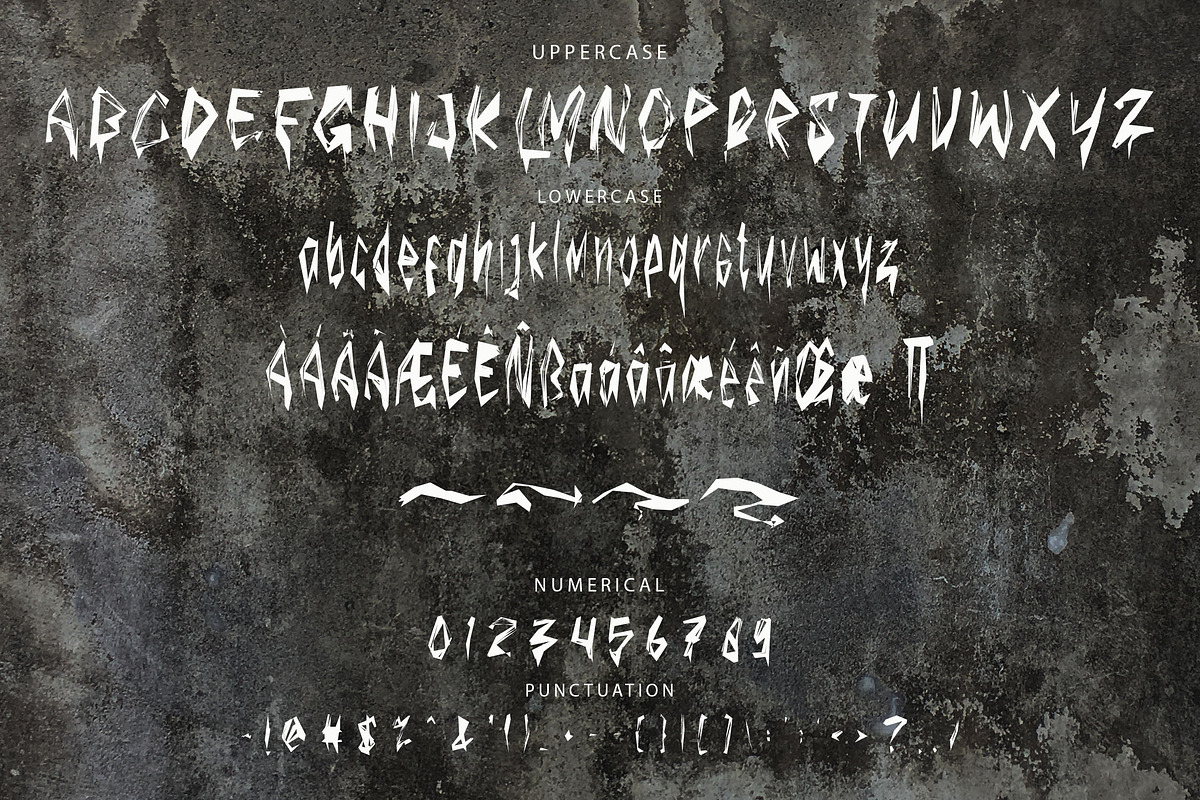 UPPERCASE
ABCDEFGHIJKLMNOPQRSTUVWXYZ
LOWERCASE
abcdefghijklmnopqrstuvwxyz
ÀÁÂÄÆÉÊÑßàáâäæéêñŒœ π
NUMERICAL
0123456789
PUNCTUATION
~!@#$%^&*()_+-={}|[]\:";'<>?,./